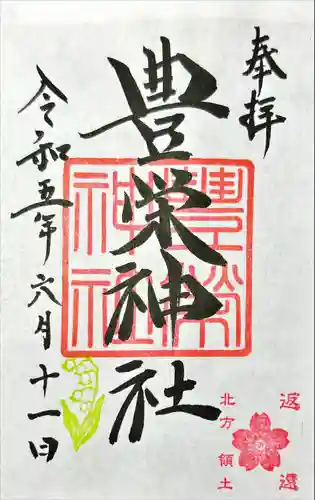 奉拝
豊榮神社
令和五年六月十一日
豊榮
神社
返還
北方領土